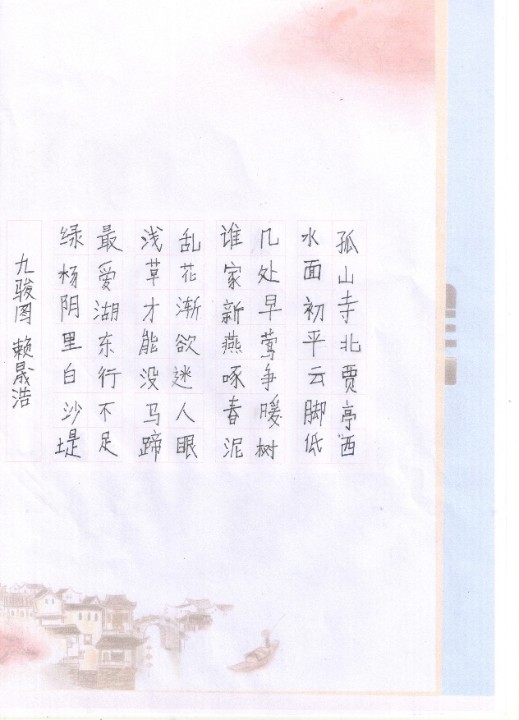 孤山寺北贾亭西
水面初平云脚低
几处早莺争暖树
谁家新燕啄春泥
乱花渐欲迷人眼
浅草才能没马蹄
最爱湖东行不足
绿杨阴里白沙堤
九骏图 赖晟浩